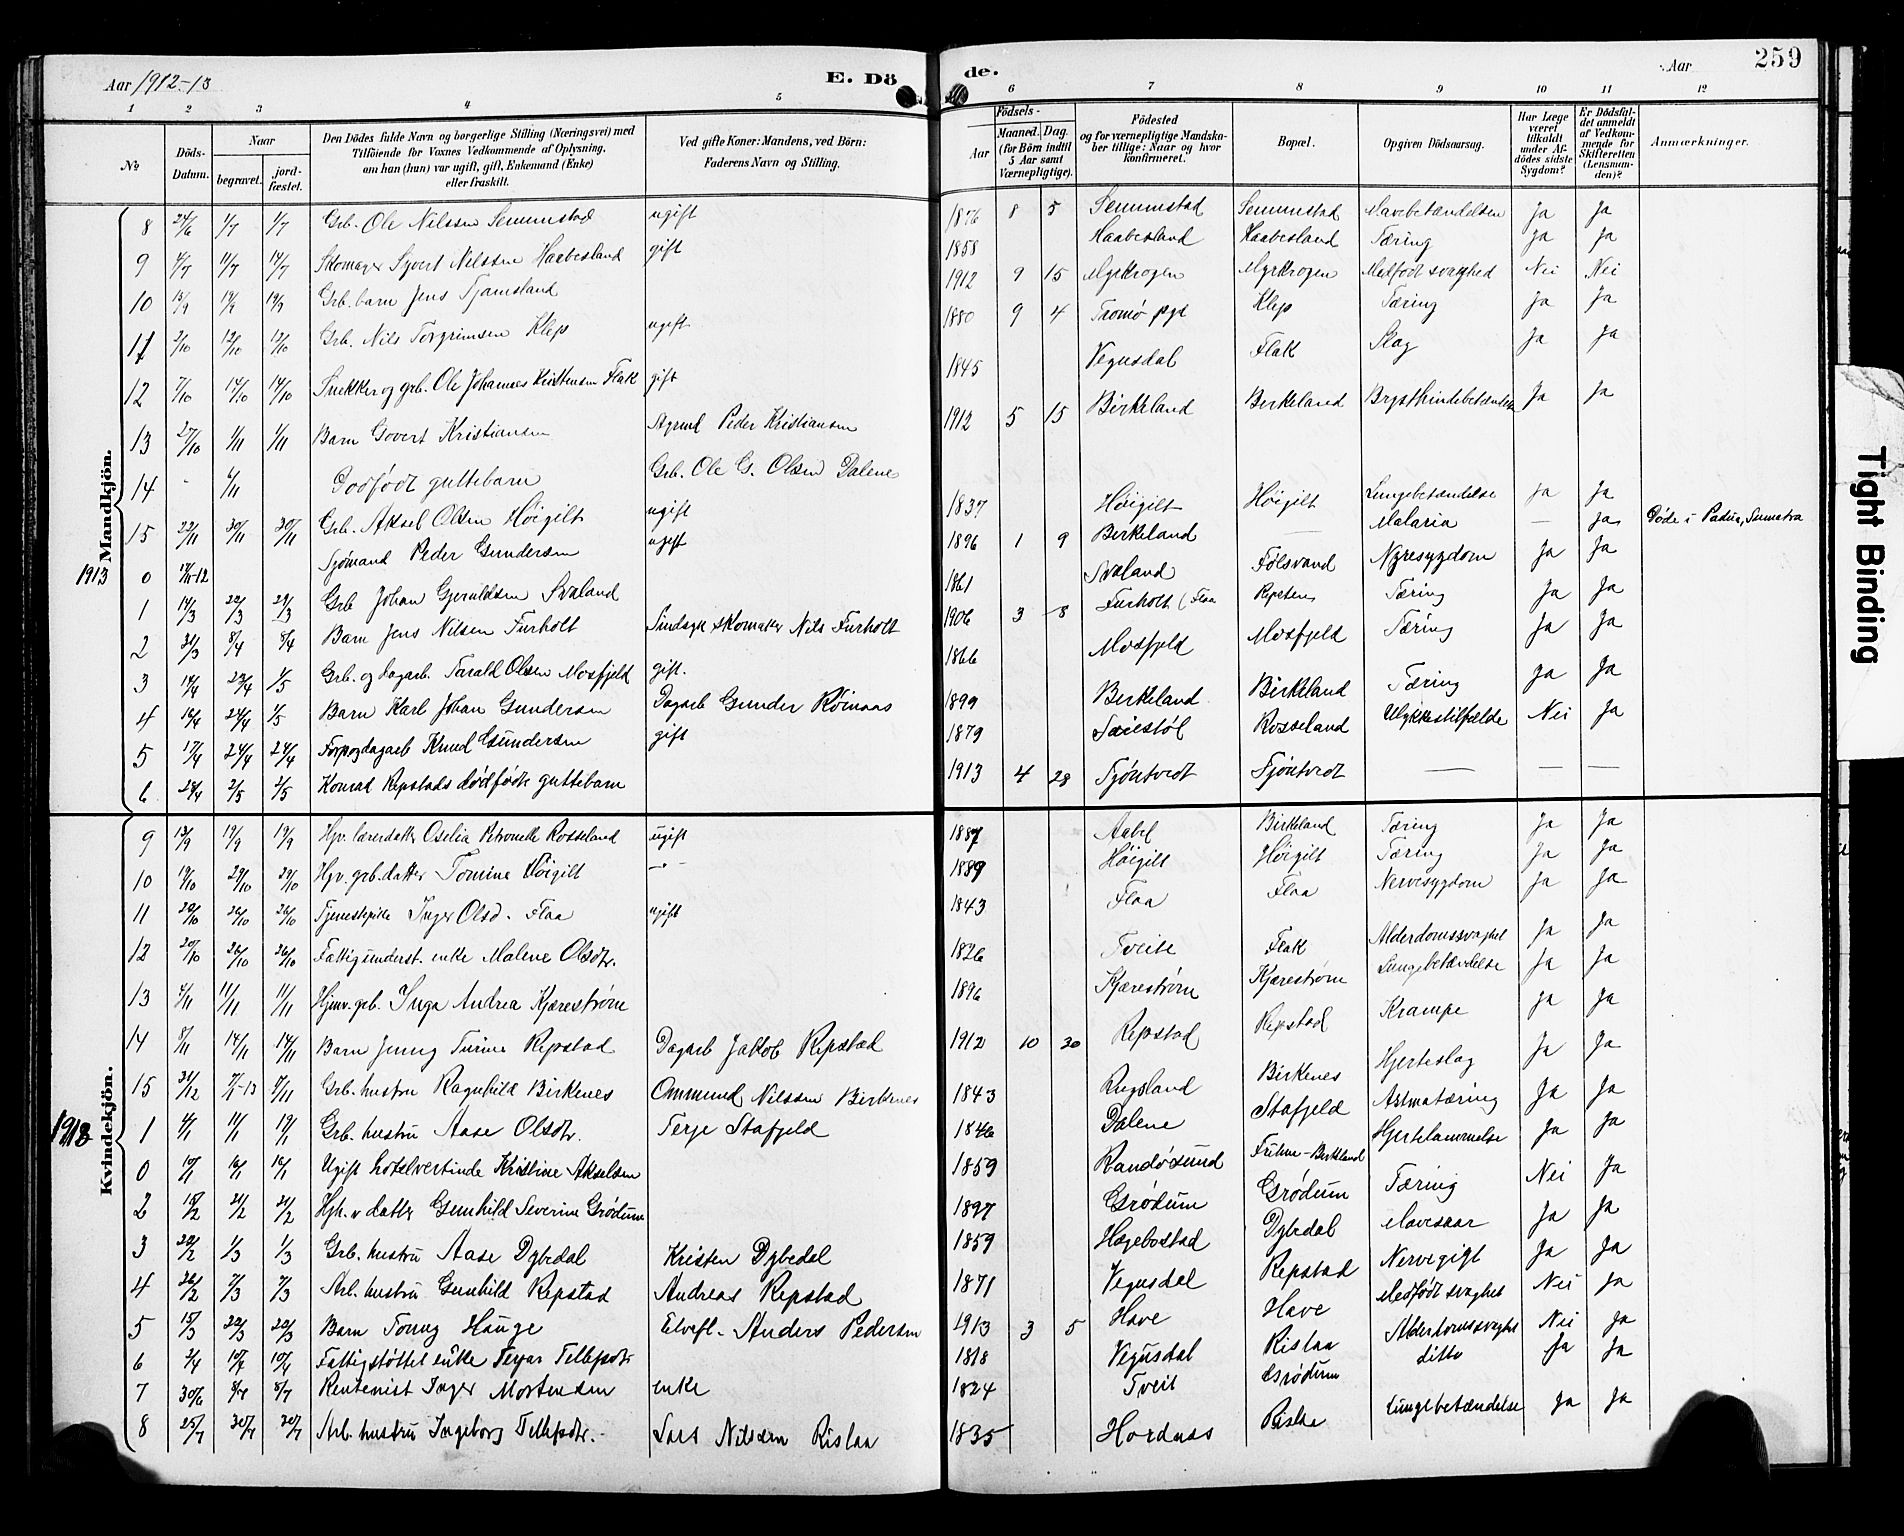 Aar 1912-13
E. Dö
de.
Aar
259
1 2 3 4 5 6 7 8 9 10 11 12
No.
Döds-Datum.
Naar
begravet.
jordfæstet.
Den Dödes fulde Navn og borgerlige Stilling (Næringsvei) med
Tilföiende for Voxnes Vedkommende af Oplysning,
om han (hun) var ugift, gift, Enkemand (Enke)
eller fraskilt.
Ved gifte Koner: Mandens, ved Börn:
Faderens Navn og Stilling.
Födsels-
Aar
Maaned. Dag.
(for Börn indtil
5 Aar samt
Værnepligtige).
Födested
og for værnepligtige Mandska-
ber tillige: Naar og hvor
konfirmeret.
Bopæl.
Opgiven Dödsaarsag.
Har Læge
været
tilkaldt
under Af-
dödes sidste
Sygdom?
Er Dödsfal-
det anmeldt
af Vedkom-
mende for
Skifteretten
(Lensman-
den)?
Anmærkninger.
Mandkjön.
8 24/6 1/7 1/7 Grb. Ole Nilssen Semmstad ugift 1876 8 5 Semmstad Semmstad Mavebetændelsen Ja Ja
9 4/7 11/7 14/7 Skomager Syvert Nilssen Haabesland gift 1858 Haabesland Haabesland Tæring Ja Ja
10 15/9 19/9 19/9 Grb. barn Jens Tjamsland 1912 9 15 Myrkrogen Myrkrogen Medfødt svaghed Nei Nei
11 2/10 12/10 12/10 Grb. Nils Torgrimsen Klep ugift 1880 9 4 Tromø pgd Klep Tæring Ja Ja
12 7/10 14/10 14/10 Snekker og grb. Ole Johannes Kristensen Flak gift 1845 Vegusdal Flak Slag Ja Ja
13 27/10 1/11 1/11 Barn Govert Kristiansen Agend Peder Kristiansen 1912 5 15 Birkeland Birkeland Brysthindebetændelse Ja Ja
14 - 4/11 Dødfødt guttebarn Grb. Ole G. Olsen Dalene
15 22/11 30/11 30/11 Grb. Aksel Olsen Høigilt ugift 1837 Høigilt Høigilt Lungebetændelse Ja Ja
1913 0 -12 Sjømand Peder Gundersen ugift 1896 1 9 Birkeland — Malaria — Ja Døde i Padua, Sumatra
1 14/3 22/3 29/3 Grb Johan Gjeruldsen Svaland 1861 Svaland Følsvand Nyresygdom Ja Ja
2 31/3 8/4 8/4 Barn Jens Nilsen Furholt skomaker Nils Furholt 1906 3 8 Furholt (Flaa Tæring Ja Ja
3 14/4 29/4 1/5 Grb. og dagarb. Tarald Olsen Mosfjeld gift. 1866 Mosfjeld Mosfjeld Tæring Ja Ja
4 16/4 24/4 1/5 Barn Karl Johan Gundersen Dagarb Gunder Röinaas 1899 Birkeland Birkeland Tæring Ja Ja
5 17/4 24/4 24/4 Forp og dagarb Knud Gundersen gift 1879 Rosseland Ulykkestilfælde Nei Ja
6 28/4 2/5 2/5 Konrad Repstads dødfødte guttebarn 1913 4 28 Tjöntvedt Tjöntvedt — — —
Kvindekjön.
9 13/9 19/9 19/9 Hjv. lærerdatter Oselia Petronelle Rosseland ugift 1887 Aabel Birkeland Tæring Ja Ja
10 19/10 29/10 29/10 Hjv. grb. datter Tomine Höigilt -"- 1889 Höigilt Höigilt Tæring Ja Ja
11 20/10 26/10 26/10 Tjenestepike Inger Olsd. Flaa ugift 1843 Flaa Flaa Nervesygdom Ja Ja
12 20/10 26/10 26/10 Fattigunderst. enke Malene Olsdtr. 1826 Tveite Flak Alderdomssvaghet Ja Ja
13 4/11 11/11 11/11 Hjmv. grb. Inga Andrea Kjærestrøm 1896 Kjærestrøm Kjærestrøm Lungebetændelse Ja Ja
14 8/11 14/11 14/11 Barn Jenny Turine Repstad Dagarb Jakob Repstad 1912 10 20 Repstad Repstad Krampe Ja Ja
15 31/12 7/1-13 Grb. hustru Ragnhild Birkenes Ommund Nilssen Birkenes 1843 Rugsland Birkenes Hjerteslag Ja Ja
1913 1 4/1 11/1 19/1 Grb. hustru Aase Olsdtr. Terje Stafjeld 1846 Dalene Stafjeld Astmatæring Ja Ja
0 10/1 16/1 16/1 Ugift hotelvertinde Kristine Akselsen 1859 Randösund Birkland Hjertelammelse Ja Ja
2 15/2 21/2 21/2 Hjh. v datter Gunhild Severine Grödum 1897 Grödum Grödum Tæring Nei Ja
3 20/2 1/3 1/3 Grb. hustru Aase Dybedal Kristen Dybedal 1859 Hægebostad Dybedal Mavesaar Ja Ja
4 26/2 7/3 7/3 Arb. hustru Gunhild Repstad Andreas Repstad 1871 Vegusdal Repstad Nervegigt Ja Ja
5 15/3 20/3 20/3 Barn Tonny Hauge Anders Pedersen 1913 3 5 Have Have Medfødt svaghet Nei Ja
6 2/4 10/4 10/4 Fattigstøttet enke Terjar Tellefsdtr 1818 Vegusdal Rislaa Alderdomssvaghet Nei Ja
7 30/6 8/7 8/7 Rentenist Inger Mortensen enke 1824 Tveit Grödum ditto Ja Ja
8 25/7 30/7 30/7 Arb. hustru Ingeborg Tellefsdtr. Lars Nilssen Rislaa 1835 Hordnes Rislaa Lungebetændelse Ja Ja
Tight Binding